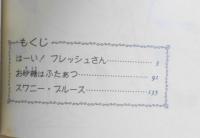 もくじ
はーい！ フレッシュさん……… 5
お砂糖はふたぁつ……… 91
スワニー・ブルース……… 135